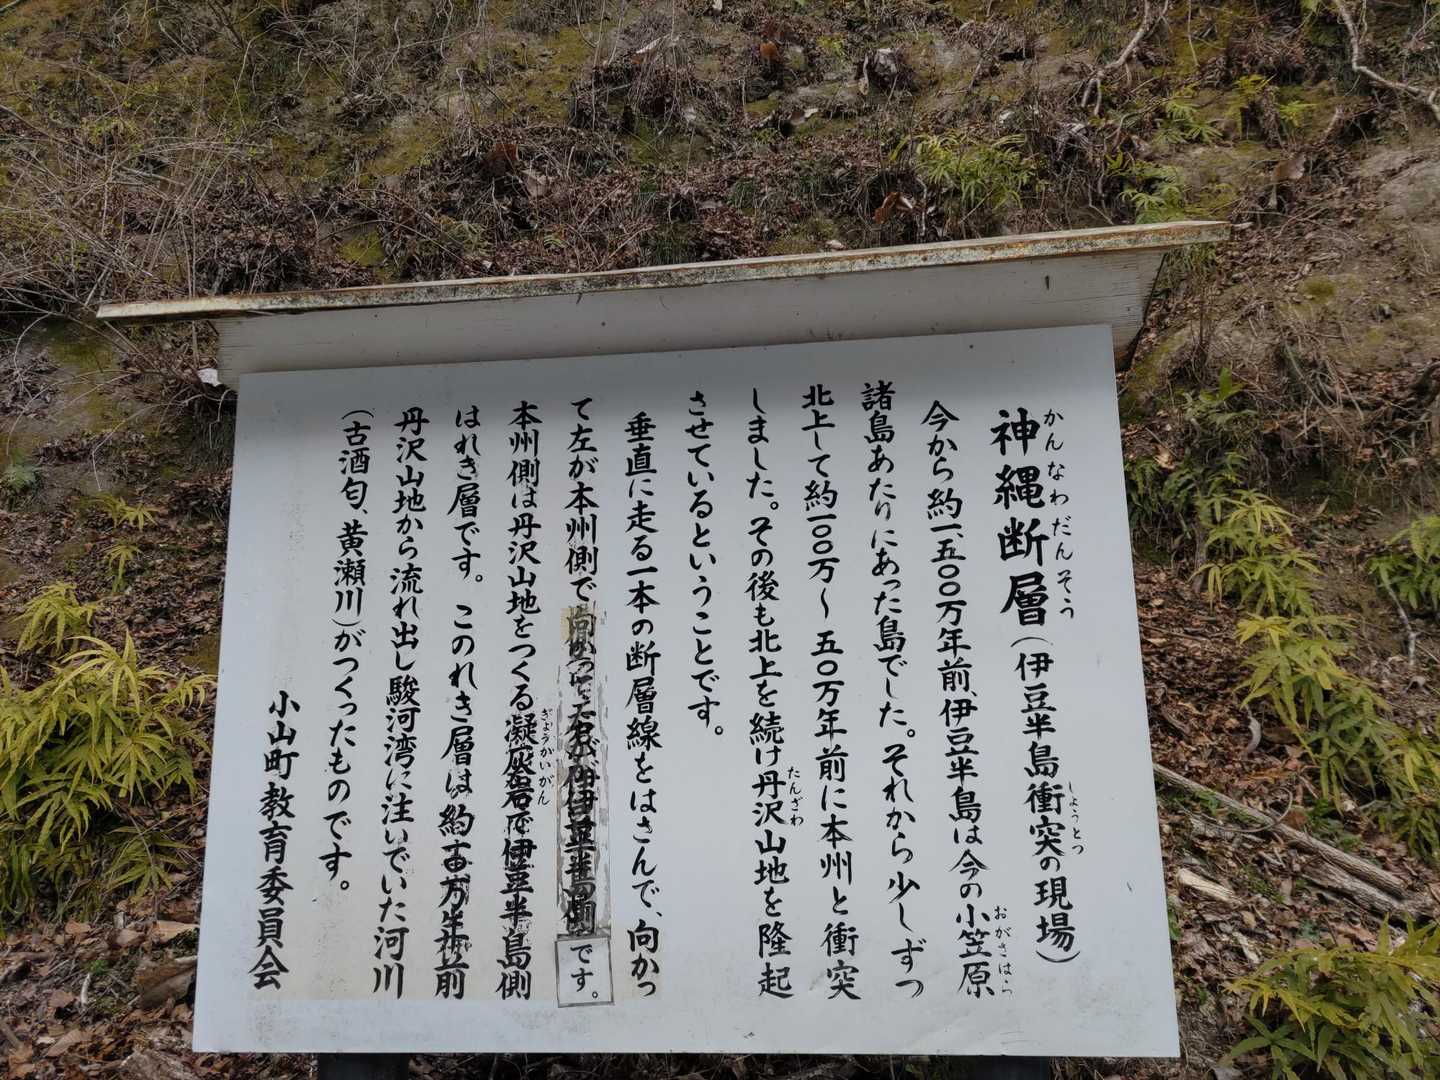 神縄断層（伊豆半島衝突の現場）
かんなわだんそう
しょうとつ
今から約一、五〇〇万年前、伊豆半島は今の小笠原
おがさはら
諸島あたりにあった島でした。それから少しずつ
北上して約一〇〇万〜五〇万年前に本州と衝突
しました。その後も北上を続け丹沢山地を隆起
たんざわ
させているということです。
垂直に走る一本の断層線をはさんで、向かっ
て左が本州側で向かって右が伊豆半島側です。
本州側は丹沢山地をつくる凝灰岩で伊豆半島側
ぎょうかいがん
はれき層です。このれき層は約 万年 前
丹沢山地から流れ出し駿河湾に注いでいた河川
（古酒匂、黄瀬川）がつくったものです。
小山町教育委員会